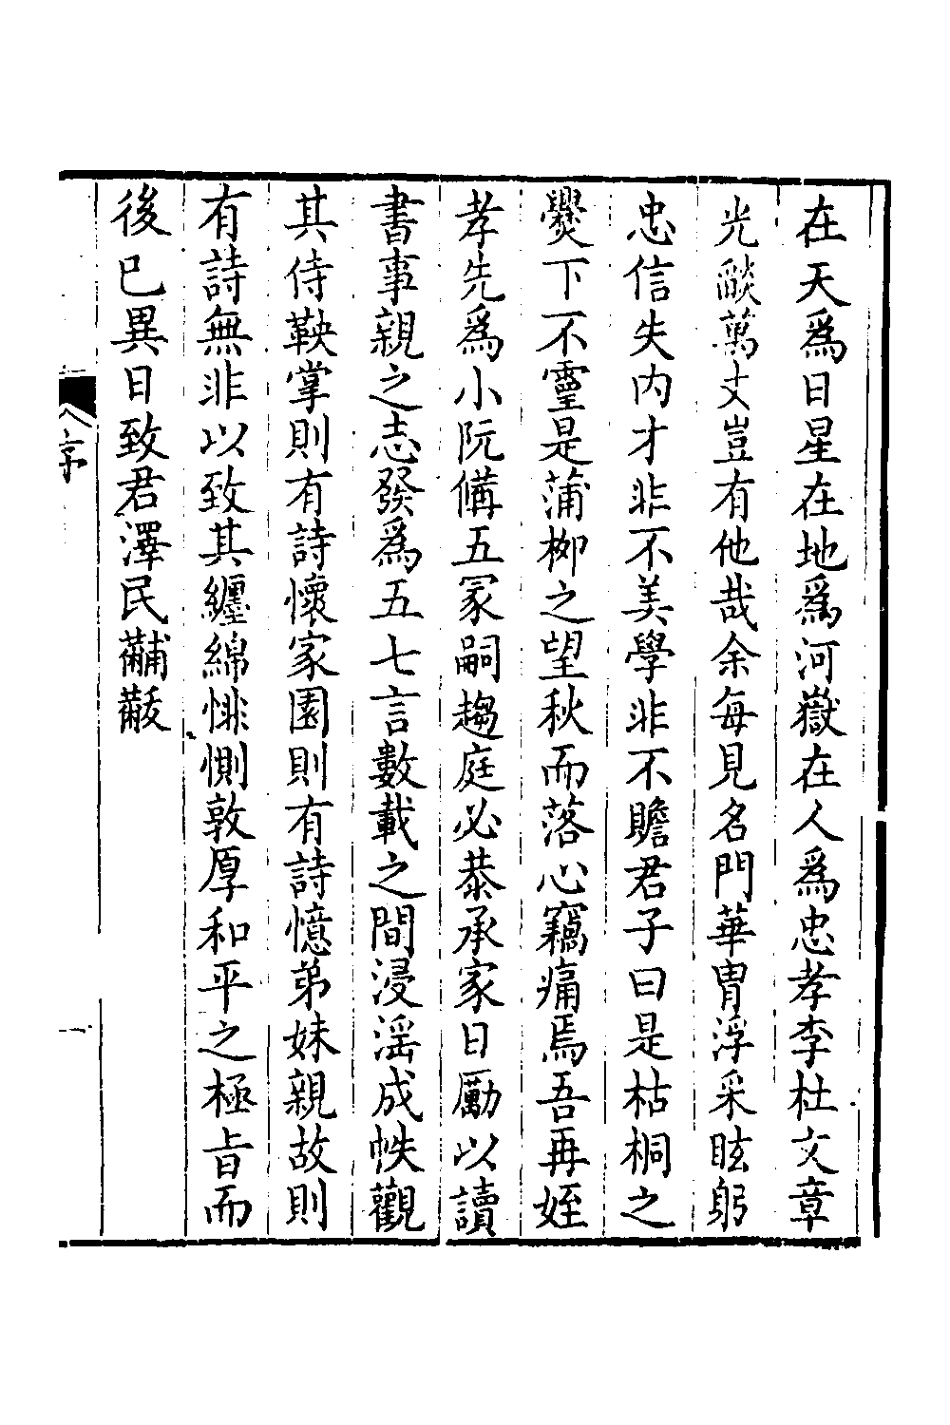 在天爲日星在地爲河嶽在人爲忠孝李杜文章
光燄萬丈豈有他哉余每見名門華胄浮采眩躬
忠信失内才非不美學非不贍君子曰是枯桐之
爨下不靈是蒲柳之望秋而落心竊痛焉吾再姪
孝先爲小阮僃五冡嗣趨庭必恭承家日勵以讀
書事親之志發爲五七言數載之間浸滛成帙觀
其侍鞅掌則有詩懷家園則有詩憶弟妹親故則
有詩無非以致其纏綿悱惻敦厚和平之極㫖而
後已異日致君澤民黼黻
序
一